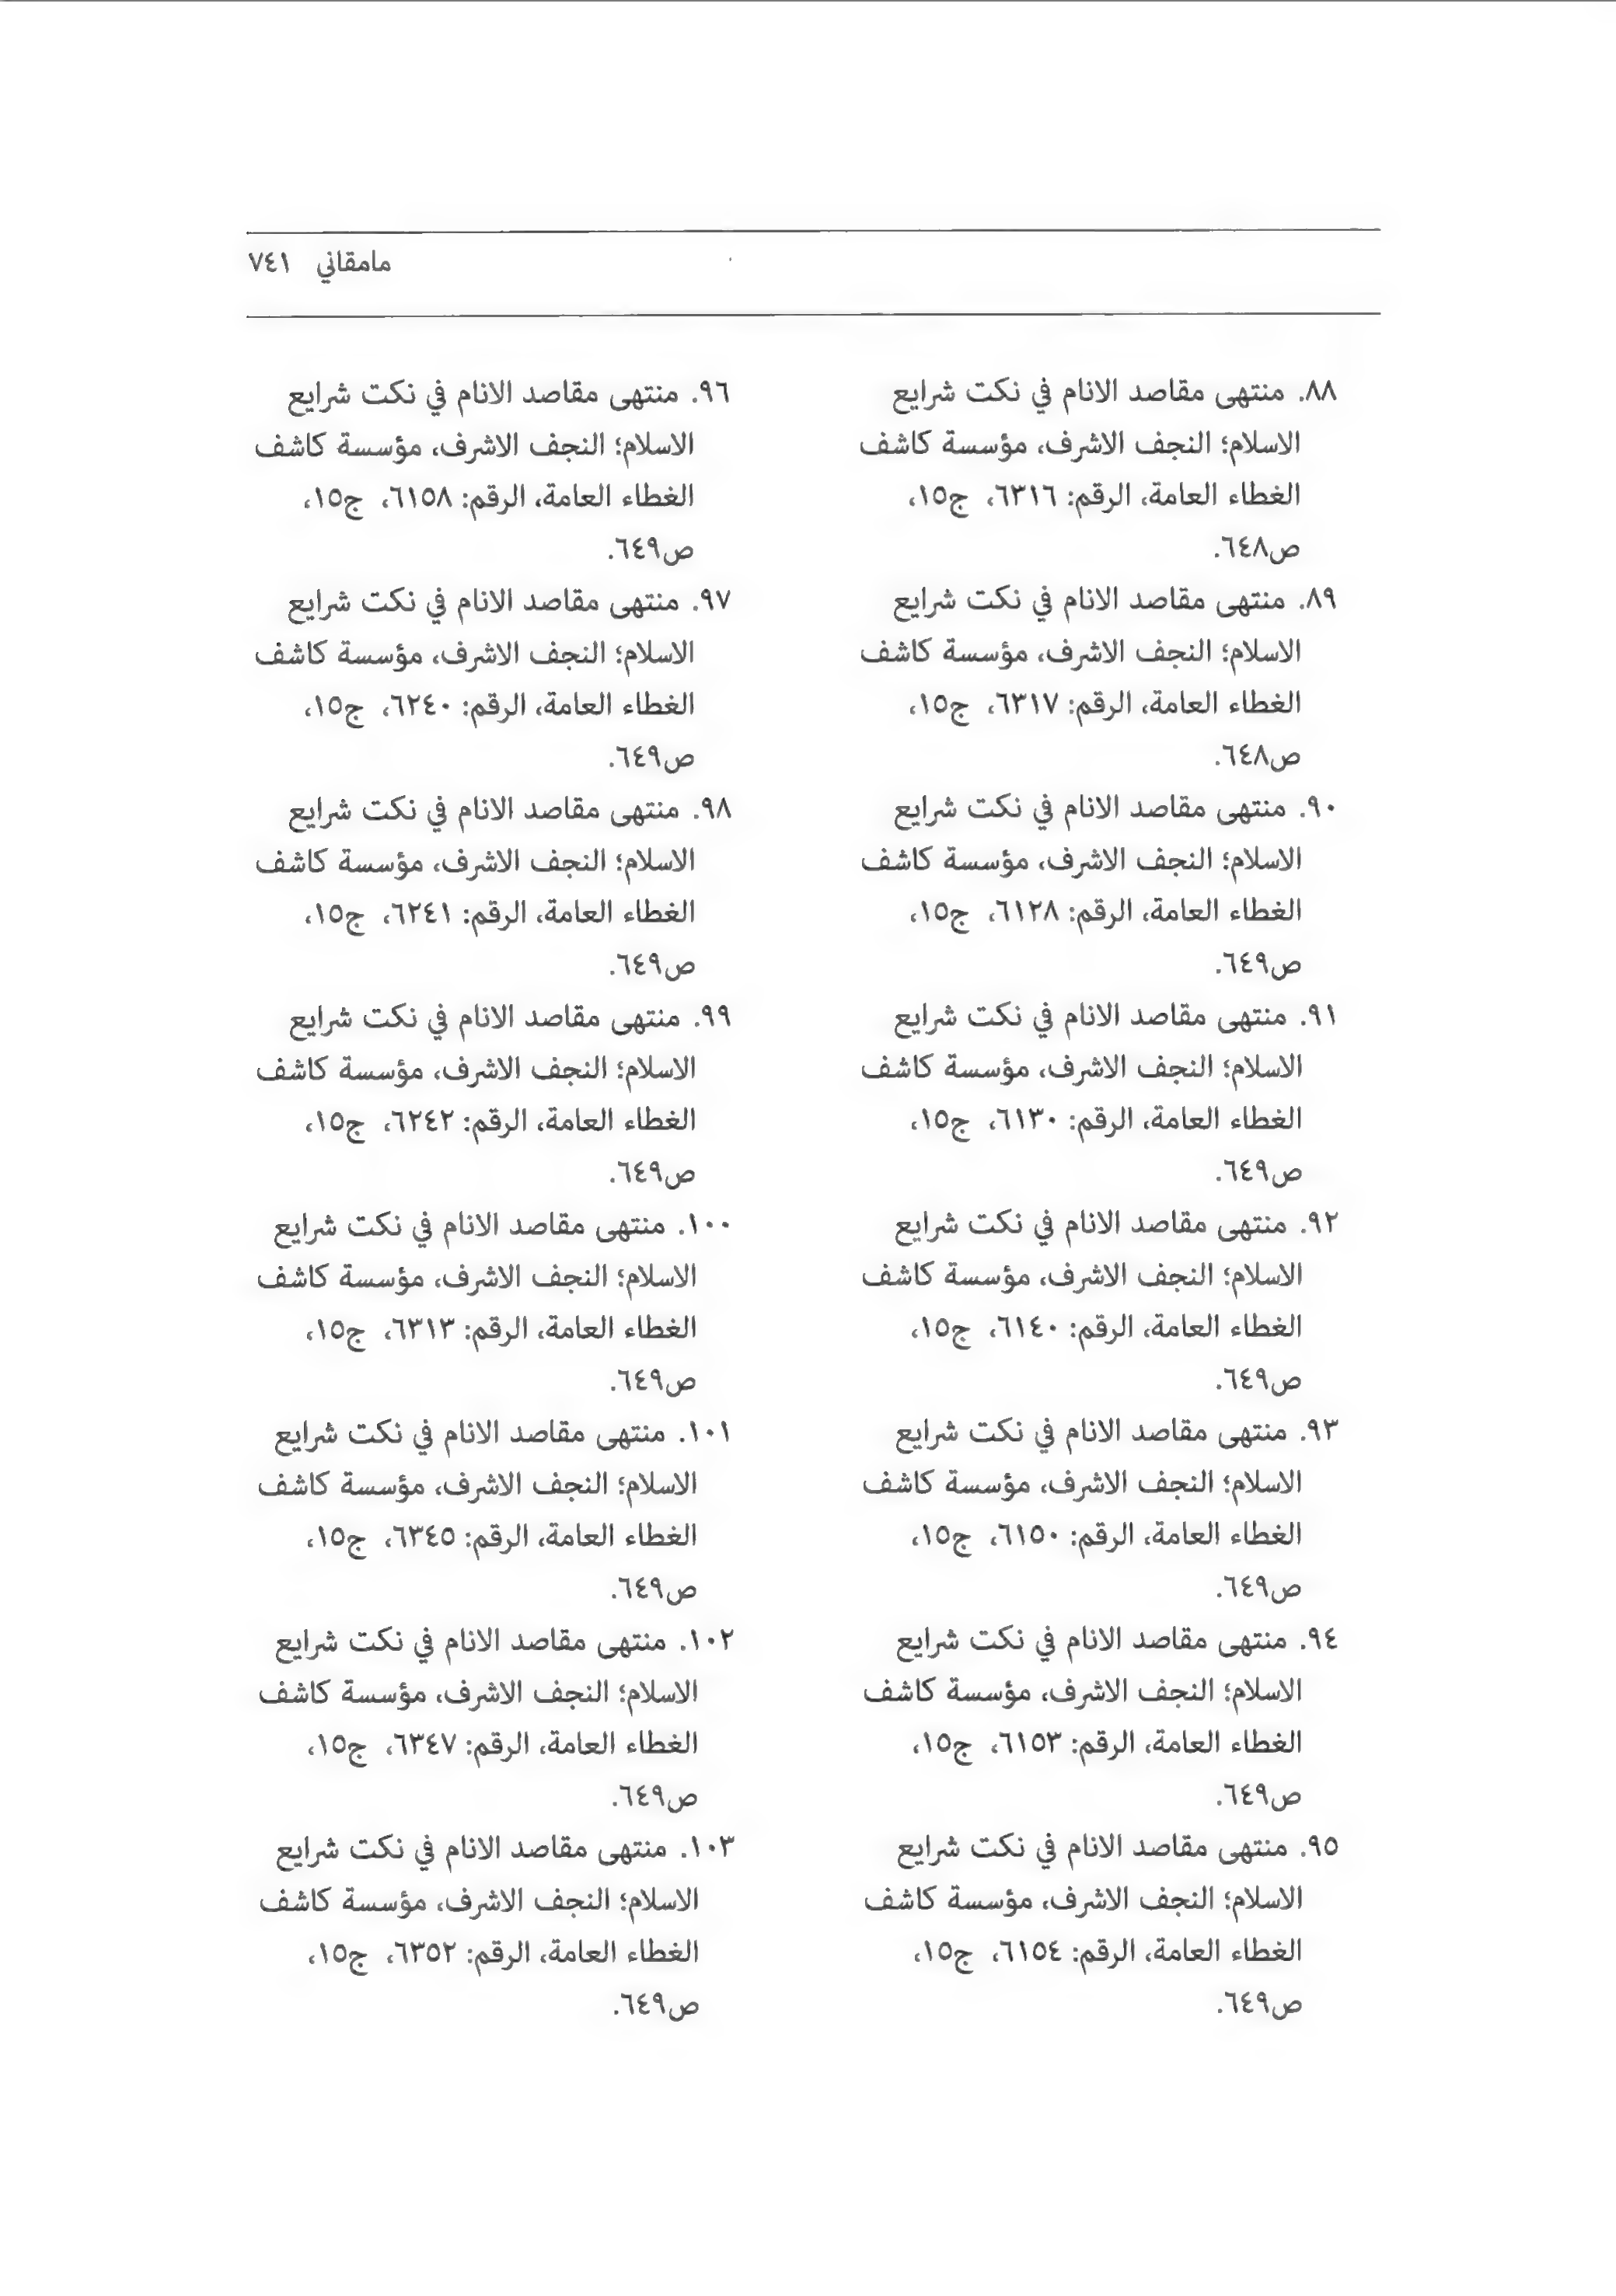 مامقاني ٧٤١
٨٨. منتهى مقاصد الانام في نكت شرايع
الاسلام؛ النجف الاشرف، مؤسسة كاشف
الغطاء العامة، الرقم: ٦٣١٦، ج١٥،
ص٦٤٨.
٨٩. منتهى مقاصد الانام في نكت شرايع
الاسلام؛ النجف الاشرف، مؤسسة كاشف
الغطاء العامة، الرقم: ٦٣١٧، ج١٥،
ص٦٤٨.
٩٠. منتهى مقاصد الانام في نكت شرايع
الاسلام؛ النجف الاشرف، مؤسسة كاشف
الغطاء العامة، الرقم: ٦١٢٨، ج١٥،
ص٦٤٩.
٩١. منتهى مقاصد الانام في نكت شرايع
الاسلام؛ النجف الاشرف، مؤسسة كاشف
الغطاء العامة، الرقم: ٦١٣٠، ج١٥،
ص٦٤٩.
٩٢. منتهى مقاصد الانام في نكت شرايع
الاسلام؛ النجف الاشرف، مؤسسة كاشف
الغطاء العامة، الرقم: ٦١٤٠، ج١٥،
ص٦٤٩.
٩٣. منتهى مقاصد الانام في نكت شرايع
الاسلام؛ النجف الاشرف، مؤسسة كاشف
الغطاء العامة، الرقم: ٦١٥٠، ج١٥،
ص٦٤٩.
٩٤. منتهى مقاصد الانام في نكت شرايع
الاسلام؛ النجف الاشرف، مؤسسة كاشف
الغطاء العامة، الرقم: ٦١٥٣، ج١٥،
ص٦٤٩.
٩٥. منتهى مقاصد الانام في نكت شرايع
الاسلام؛ النجف الاشرف، مؤسسة كاشف
الغطاء العامة، الرقم: ٦١٥٤، ج١٥،
ص٦٤٩.
٩٦. منتهى مقاصد الانام في نكت شرايع
الاسلام؛ النجف الاشرف، مؤسسة كاشف
الغطاء العامة، الرقم: ٦١٥٨، ج١٥،
ص٦٤٩.
٩٧. منتهى مقاصد الانام في نكت شرايع
الاسلام؛ النجف الاشرف، مؤسسة كاشف
الغطاء العامة، الرقم: ٦٢٤٠، ج١٥،
ص٦٤٩.
٩٨. منتهى مقاصد الانام في نكت شرايع
الاسلام؛ النجف الاشرف، مؤسسة كاشف
الغطاء العامة، الرقم: ٦٢٤١، ج١٥،
ص٦٤٩.
٩٩. منتهى مقاصد الانام في نكت شرايع
الاسلام؛ النجف الاشرف، مؤسسة كاشف
الغطاء العامة، الرقم: ٦٢٤٢، ج١٥،
ص٦٤٩.
١٠٠. منتهى مقاصد الانام في نكت شرايع
الاسلام؛ النجف الاشرف، مؤسسة كاشف
الغطاء العامة، الرقم: ٦٣١٣، ج١٥،
ص٦٤٩.
١٠١. منتهى مقاصد الانام في نكت شرايع
الاسلام؛ النجف الاشرف، مؤسسة كاشف
الغطاء العامة، الرقم: ٦٣٤٥، ج١٥،
ص٦٤٩.
١٠٢. منتهى مقاصد الانام في نكت شرايع
الاسلام؛ النجف الاشرف، مؤسسة كاشف
الغطاء العامة، الرقم: ٦٣٤٧، ج١٥،
ص٦٤٩.
١٠٣. منتهى مقاصد الانام في نكت شرايع
الاسلام؛ النجف الاشرف، مؤسسة كاشف
الغطاء العامة، الرقم: ٦٣٥٢، ج١٥،
ص٦٤٩.